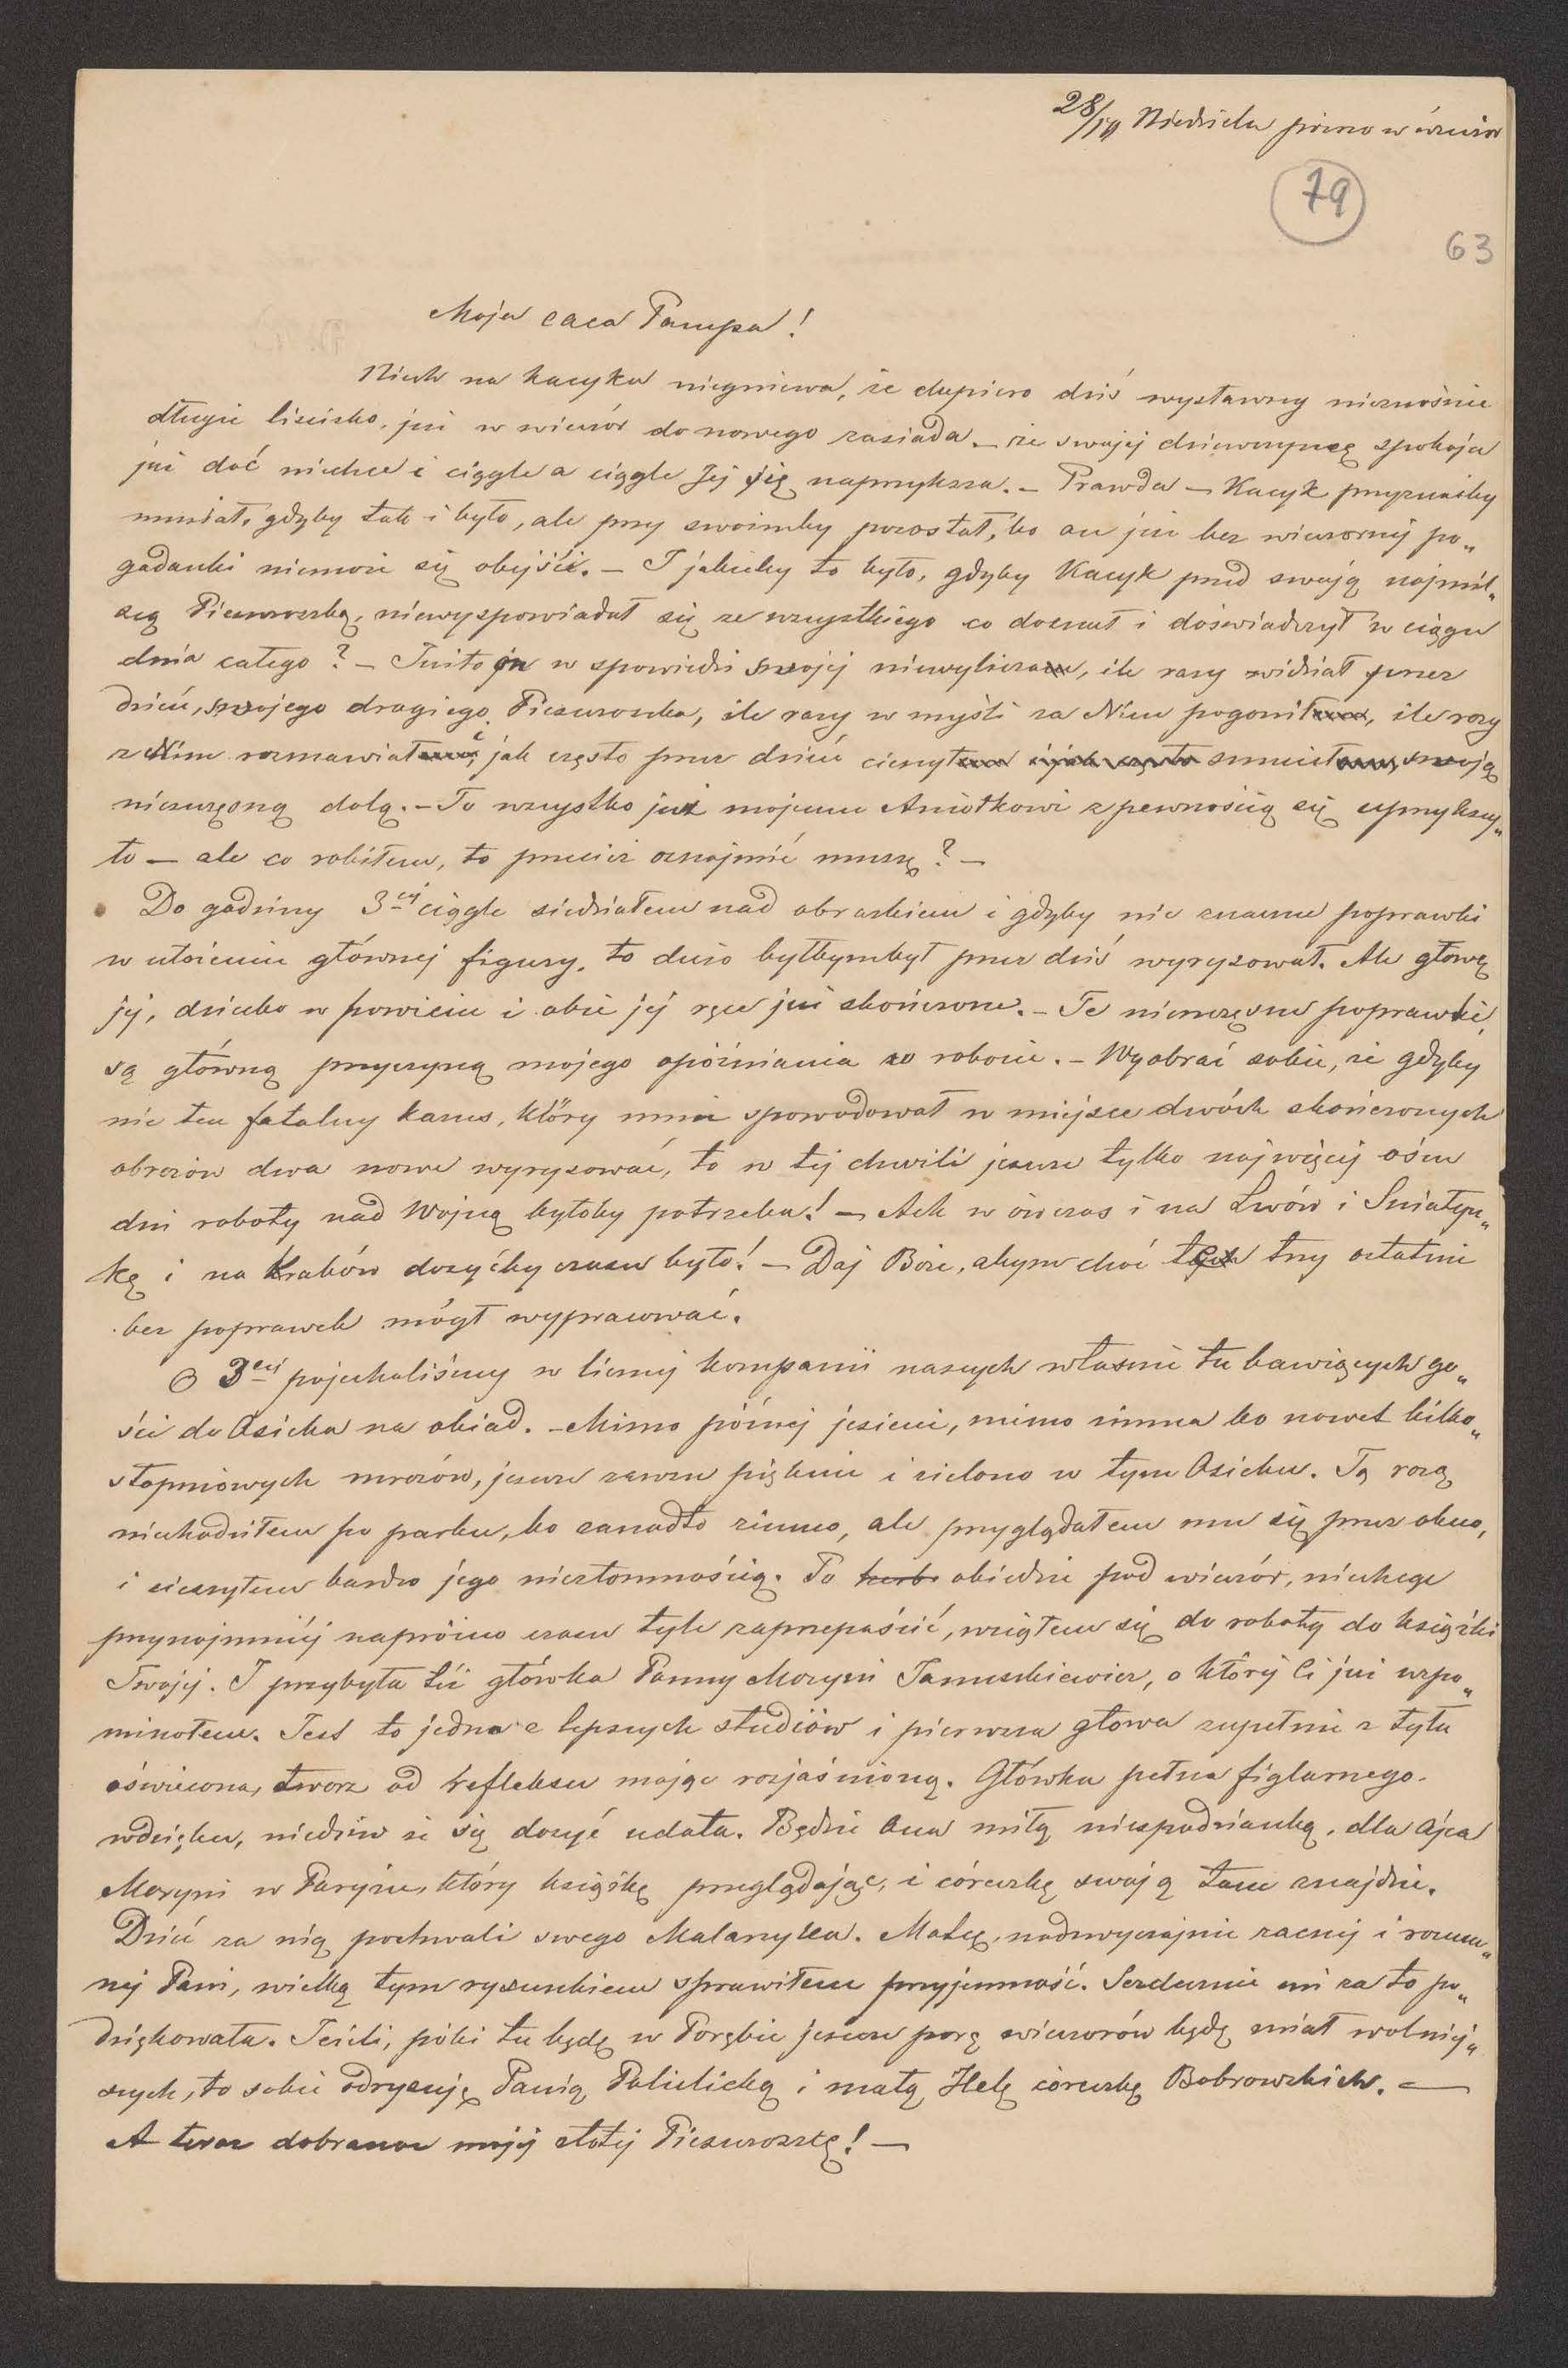 28/10 Niedziela późno w wieczór
79
63
Moja caca Pampa!
Niech na Kacyka niegniewa, że dopiero dziś wysławszy nieznośnie
długie liścisko, już w wieczór do nowego zasiada. – że swojej dziewczynce spokoju
już dać niechce i ciągle a ciągle Jej się naprzyksza. – Prawda – Kacyk przyznaćby
musiał, gdyby tak i było, ale przy swoimby pozostał, bo on już bez wieczornej po„
gadanki niemoże się obejść. – I jakieby to było, gdyby Kacyk przed swoją najmil„
szą Pieszczoszką, niewyspowiadał się ze wszystkiego co doznał i doświadczył w ciągu
dnia całego? – Jużto on w spowiedzi swojej niewylicza, ile razy widział przez
dzień, swojego drugiego Pieszczoszka, ile razy w myśli za Nim pogonił, ile razy
z Nim rozmawiał i jak często przez dzień cieszył i jak często smucił swoją
nieszczęsną dolą. – To wszystko już mojemu Aniołkowi z pewnością się uprzykszy„
ło – ale co robiłem, to przecież oznajmić muszę? –
Do godziny 3ciej ciągle siedziałem nad obrazkiem i gdyby nie znaczne poprawki
w ułożeniu głównej figury, to dużo byłbymbył przez dziś wyrysował. Ale głowę
jej, dziecko w powiciu i obie jej ręce już skończone. – Te nieszczęsne poprawki,
są główną przyczyną mojego opóźniania w robocie. – Wyobraź sobie, że gdyby
nie ten fatalny kazus, który mnie spowodował w miejsce dwóch skończonych
obrazów dwa nowe wyrysować, to w tej chwili jeszcze tylko najwięcej ośm
dni roboty nad Wojną byłoby potrzeba! – Ach w ówczas i na Lwów i Śniatyn„
kę i na Kraków dosyćby czasu było! – Daj Boże, abym choć te trzy ostatnie
bez poprawek mógł wypracować.
O 3ciej pojechaliśmy w licznej kompanii naszych własnie tu bawiących go„
ści do Osieka na obiad. – Mimo późnej jesieni, mimo zimna bo nawet kilko„
stopniowych mrozów, jeszcze zawsze pięknie i zielono w tym Osieku. Tą razą
niechodziłem po parku, bo zanadto zimno, ale przyglądałem mu się przez okno,
i cieszyłem bardzo jego niezłomnością. Po herb. obiedzie pod wieczór, niechcąc
przynajmniej napróżno czasu tyle zaprzepaścić, wziąłem się do roboty do książki
Twojej. I przybyła też główka Panny Maryni Januszkiewicz, o której Ci już wspo„
minałem. Jest to jedna z lepszych studiów i pierwsza głowa zupełnie z tyłu
oświecona, twarz od refleksu mając rozjaśnioną. Główka pełna figlarnego
wdzięku, niedziw że się dosyć udała. Będzie ona miłą niespodzianką, dla Ojca
Maryni w Paryżu, który książkę przeglądając, i córeczkę swoją tam znajdzie.
Dziś za nią pochwali swego Malarzyka. Matce, nadzwyczajnie zacnej i rozum„
nej Pani, wielką tym rysunkiem sprawiłem przyjemność. Serdecznie mi za to po„
dziękowała. Jeżeli, póki tu będę w Porębie jeszcze parę wieczorów będę miał wolniej„
szych, to sobie odrysuję Panią Pulielicką i małą Helę córeczkę Bobrowskich. –
A teraz dobranoc mojej złotej Pieszczoszce! –